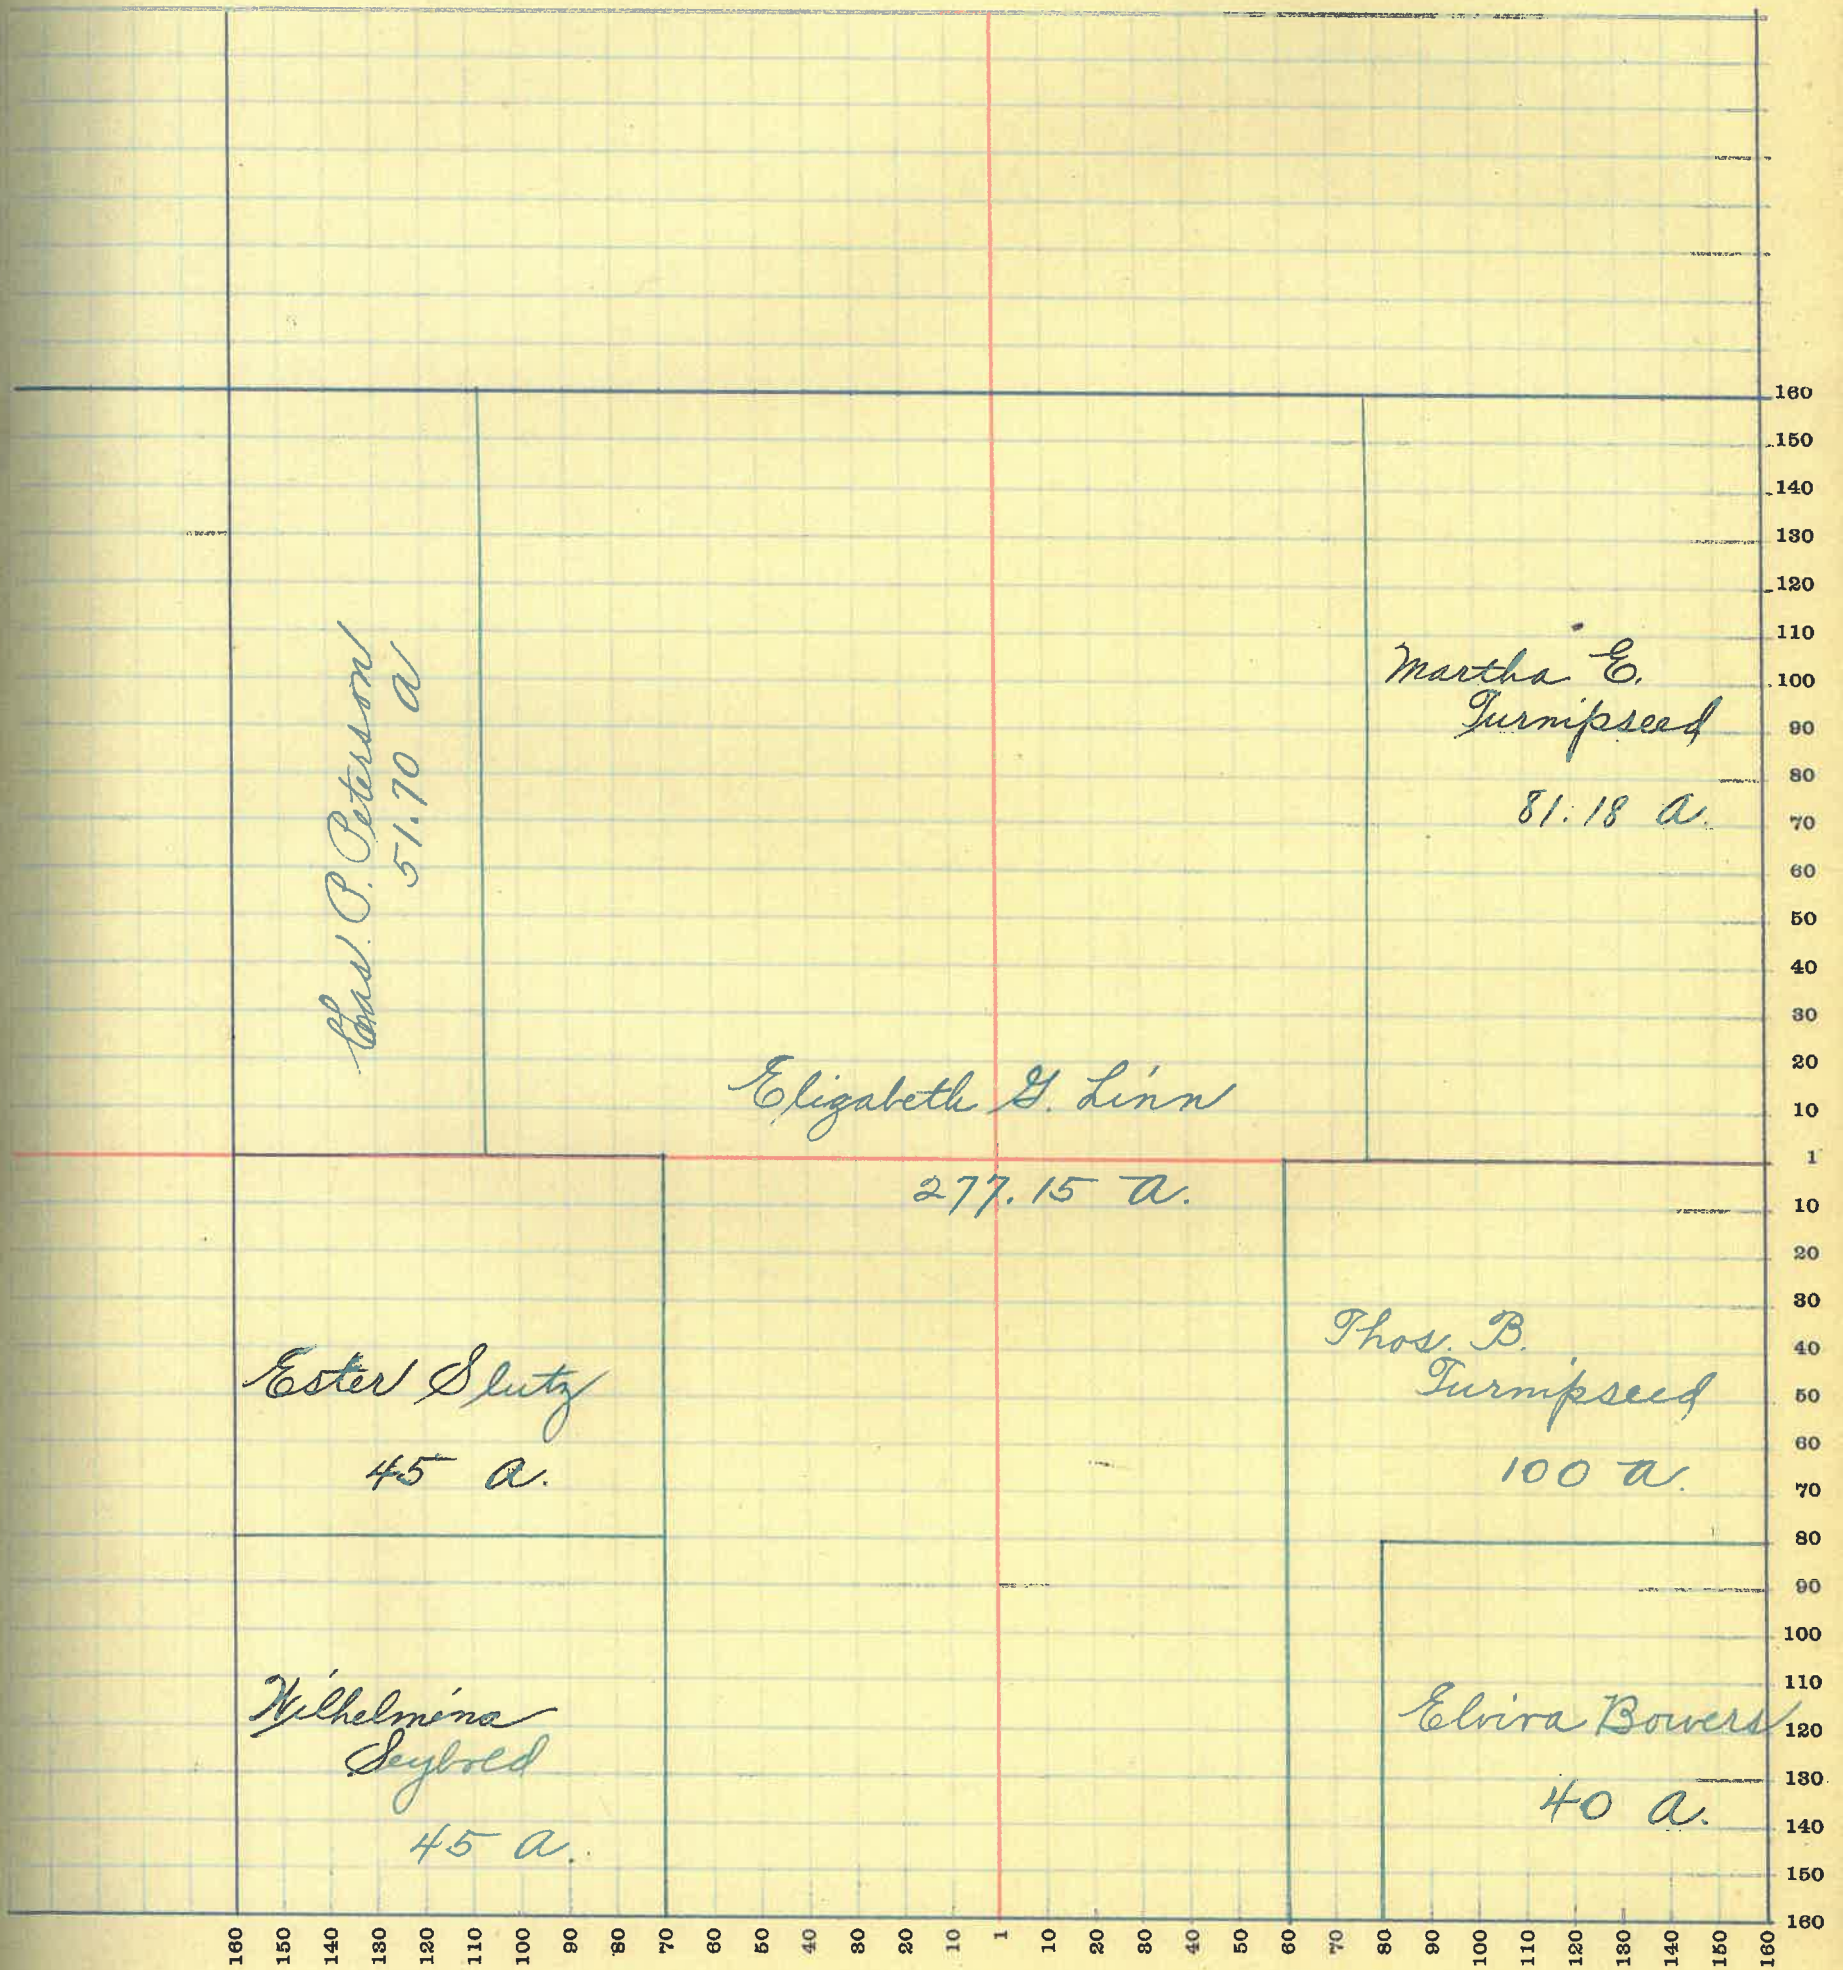 Chas. P. Peterson
51.70 a
Martha E.
Turnipseed
81.18 a.
Elizabeth G. Linn
277.15 a.
Ester Slutz
45 a.
Thos. B.
Turnipseed
100 a.
Wilhelmina
Seybold
45 a.
Elvira Bowers
40 a.
160
150
140
130
120
110
100
90
80
70
60
50
40
30
20
10
1
10
20
30
40
50
60
70
80
90
100
110
120
130
140
150
160
160 150 140 130 120 110 100 90 80 70 60 50 40 30 20 10 1 10 20 30 40 50 60 70 80 90 100 110 120 130 140 150 160